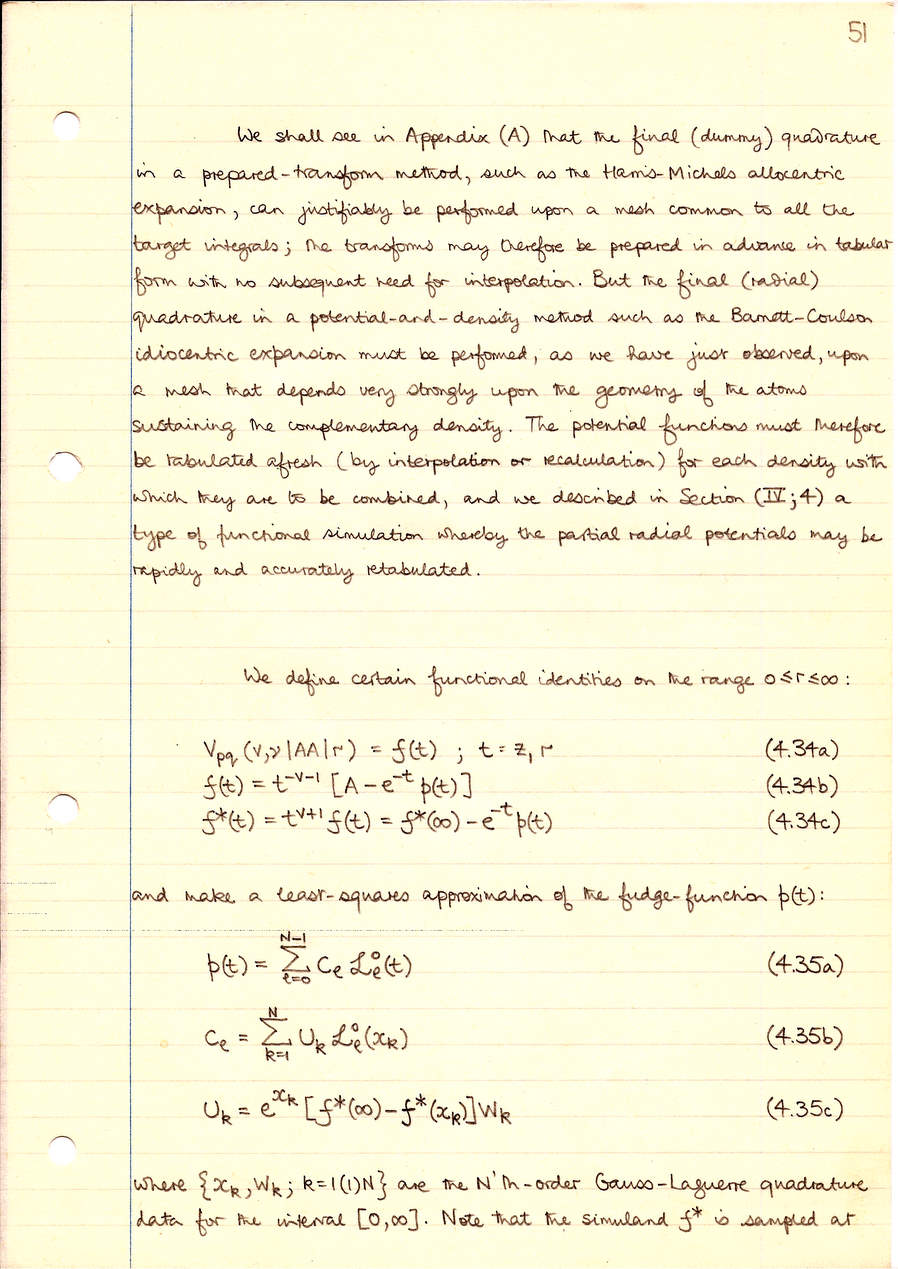 51
We shall see in Appendix (A) that the final (dummy) quadrature
in a prepared-transform method, such as the Harris-Michels allocentric
expansion, can justifiably be performed upon a mesh common to all the
target integrals; the transforms may therefore be prepared in advance in tabular
form with no subsequent need for interpolation. But the final (radial)
quadrature in a potential-and-density method such as the Barnett-Coulson
idiocentric expansion must be performed, as we have just observed, upon
a mesh that depends very strongly upon the geometry of the atoms
sustaining the complementary density. The potential functions must therefore
be tabulated afresh (by interpolation or recalculation) for each density with
which they are to be combined, and we described in Section (IV;4) a
type of functional simulation whereby the partial radial potentials may be
rapidly and accurately retabulated.
We define certain functional identities on the range 0≤r≤∞:
V_pq (v,ν|AA|r) = f(t) ; t = z, r (4.34a)
f(t) = t^{-v-1} [A - e^{-t} p(t)] (4.34b)
f*(t) = t^{v+1} f(t) = f*(∞) - e^{-t} p(t) (4.34c)
and make a least-squares approximation of the fudge-function p(t):
p(t) = Σ_{ℓ=0}^{N-1} C_ℓ ℒ_ℓ^0(t) (4.35a)
C_ℓ = Σ_{k=1}^{N} U_k ℒ_ℓ^0(x_k) (4.35b)
U_k = e^{x_k} [f*(∞) - f*(x_k)] W_k (4.35c)
where {x_k, W_k; k=1(1)N} are the N'th-order Gauss-Laguerre quadrature
data for the interval [0,∞]. Note that the simuland f* is sampled at